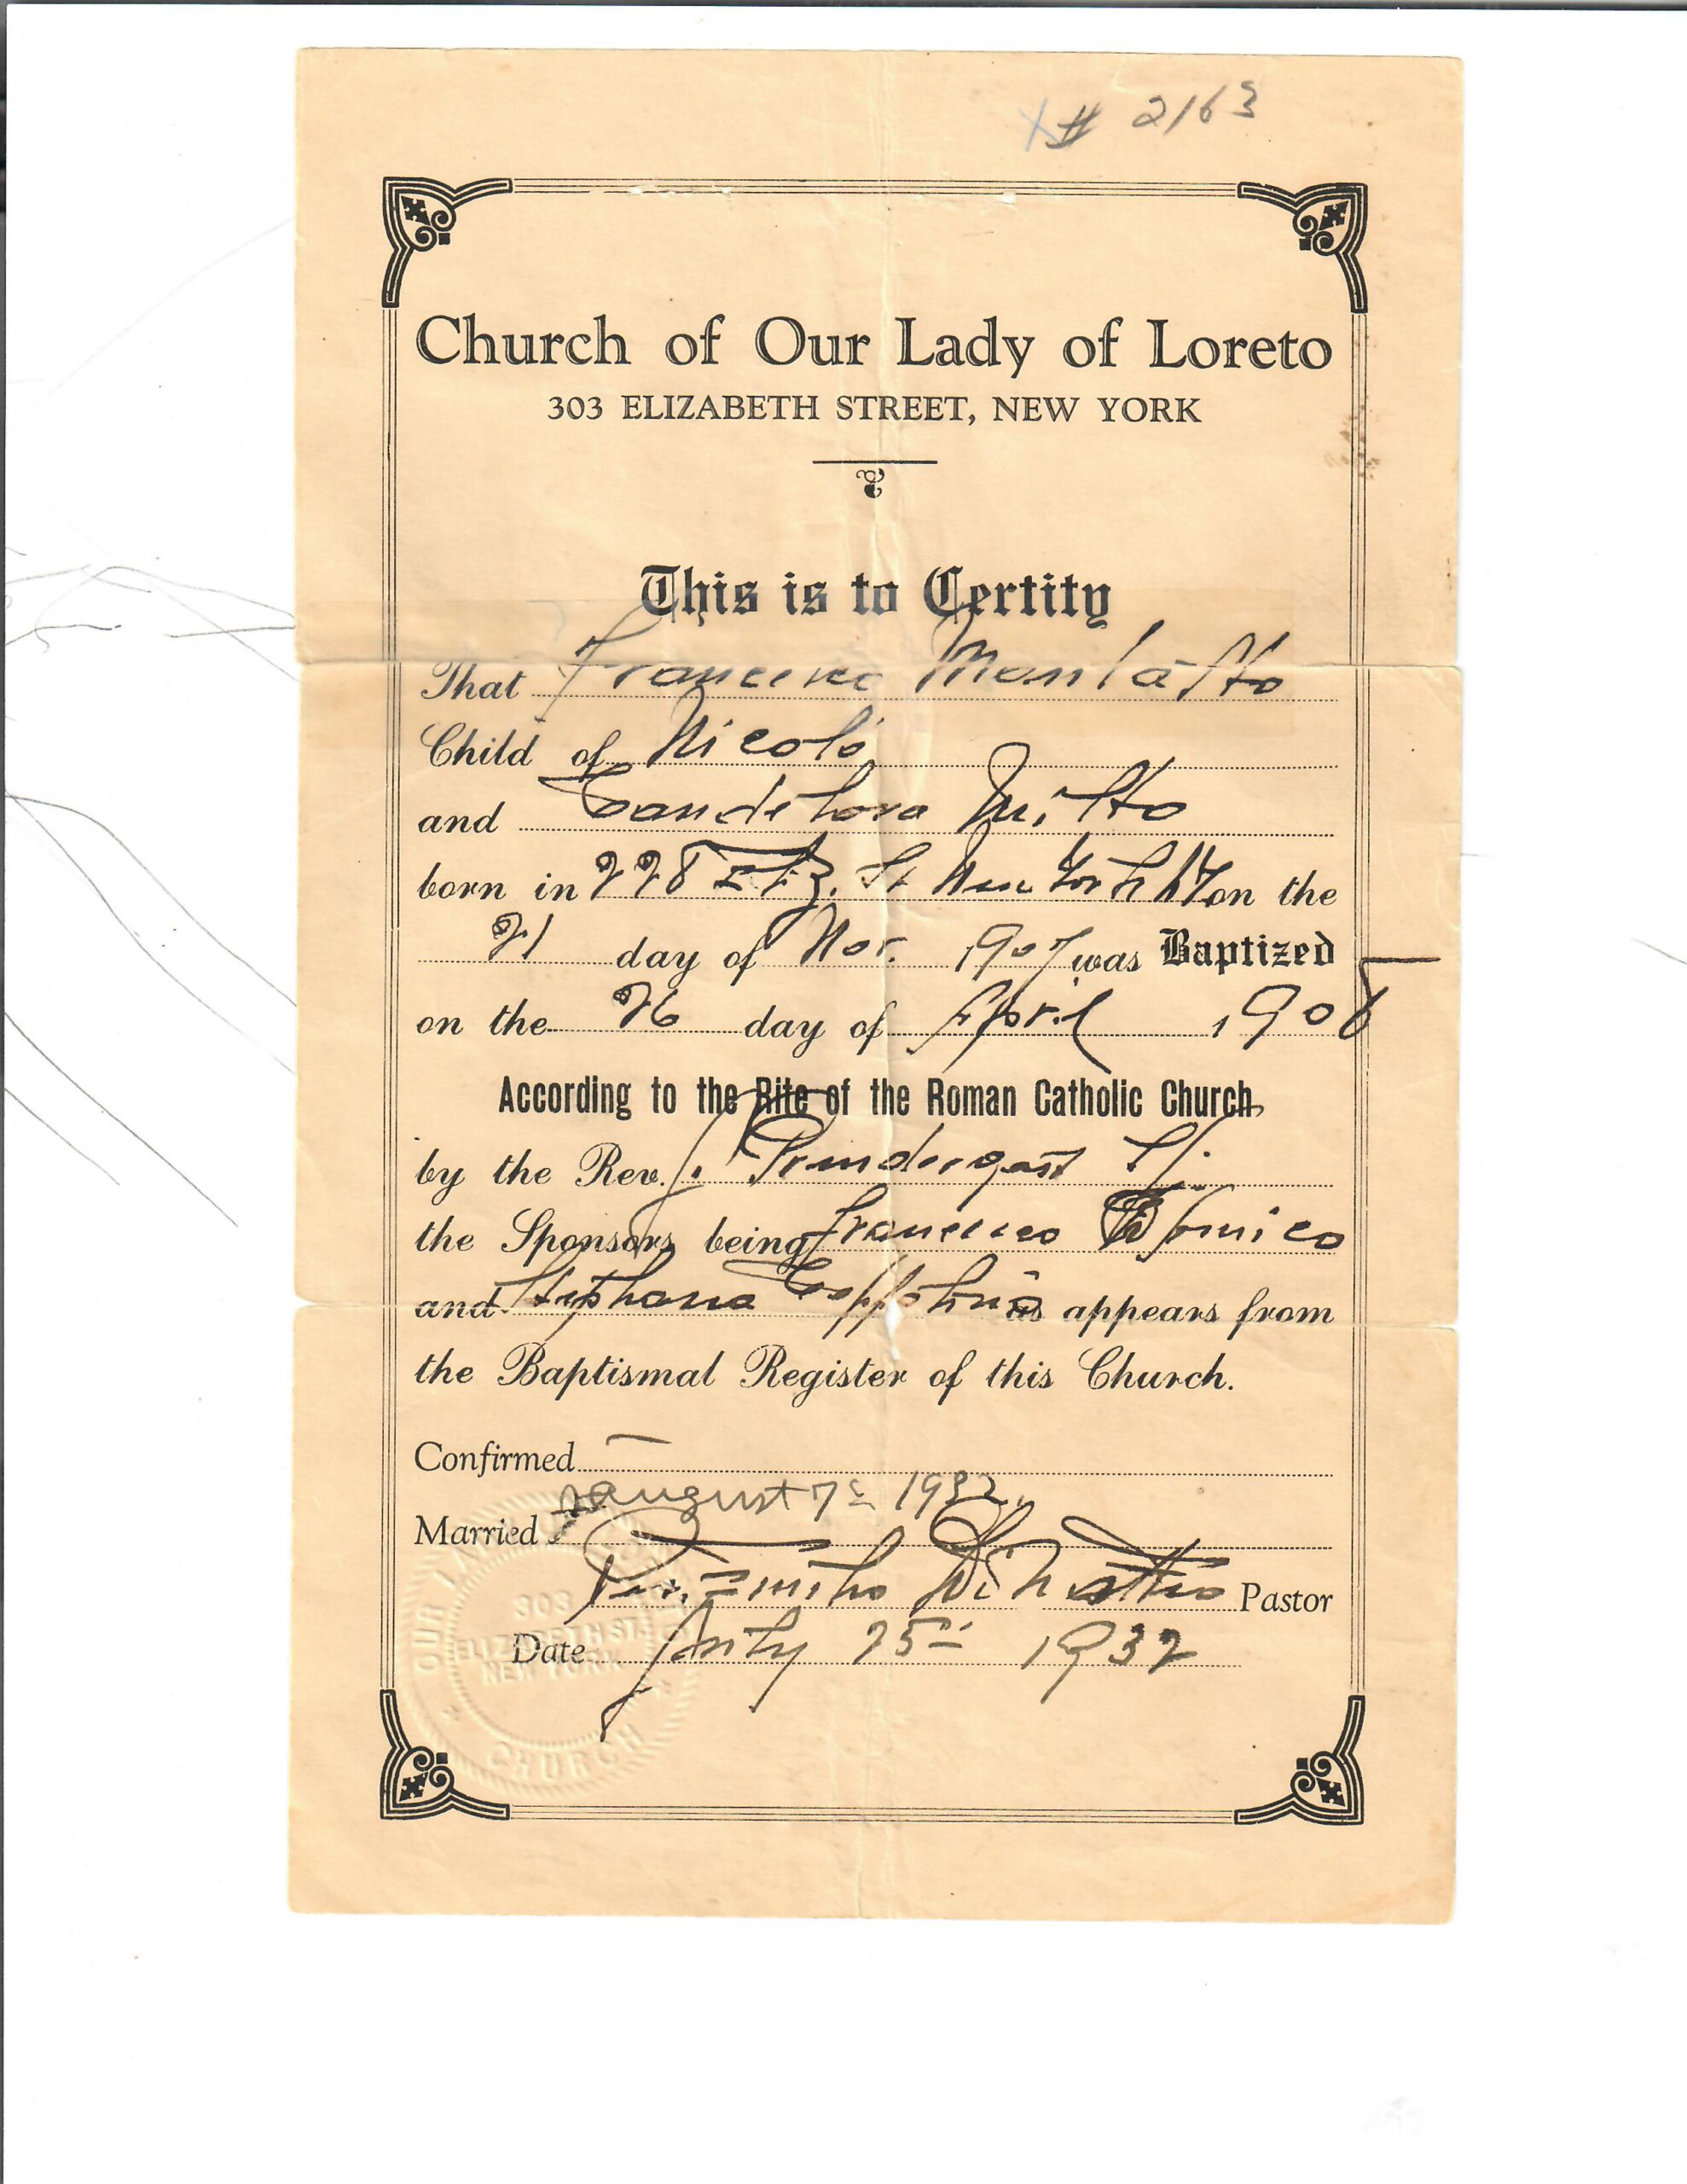 # 2163
Church of Our Lady of Loreto
303 ELIZABETH STREET, NEW YORK
This is to Certity
That Francesco
Child of Nicolò
and Candelora
born in 228 Eliz. St New York NY on the
21 day of Nov. 1907 was Baptized
on the 26 day of April 1908
According to the Rite of the Roman Catholic Church
by the Rev. J. Prendergast S.J.
the Sponsors being Francesco
and Stephana as appears from
the Baptismal Register of this Church.
Confirmed —
Married August 7th 1932
Pastor
Date July 25th 1932
OUR LADY
303
ELIZABETH ST.
NEW YORK
CHURCH